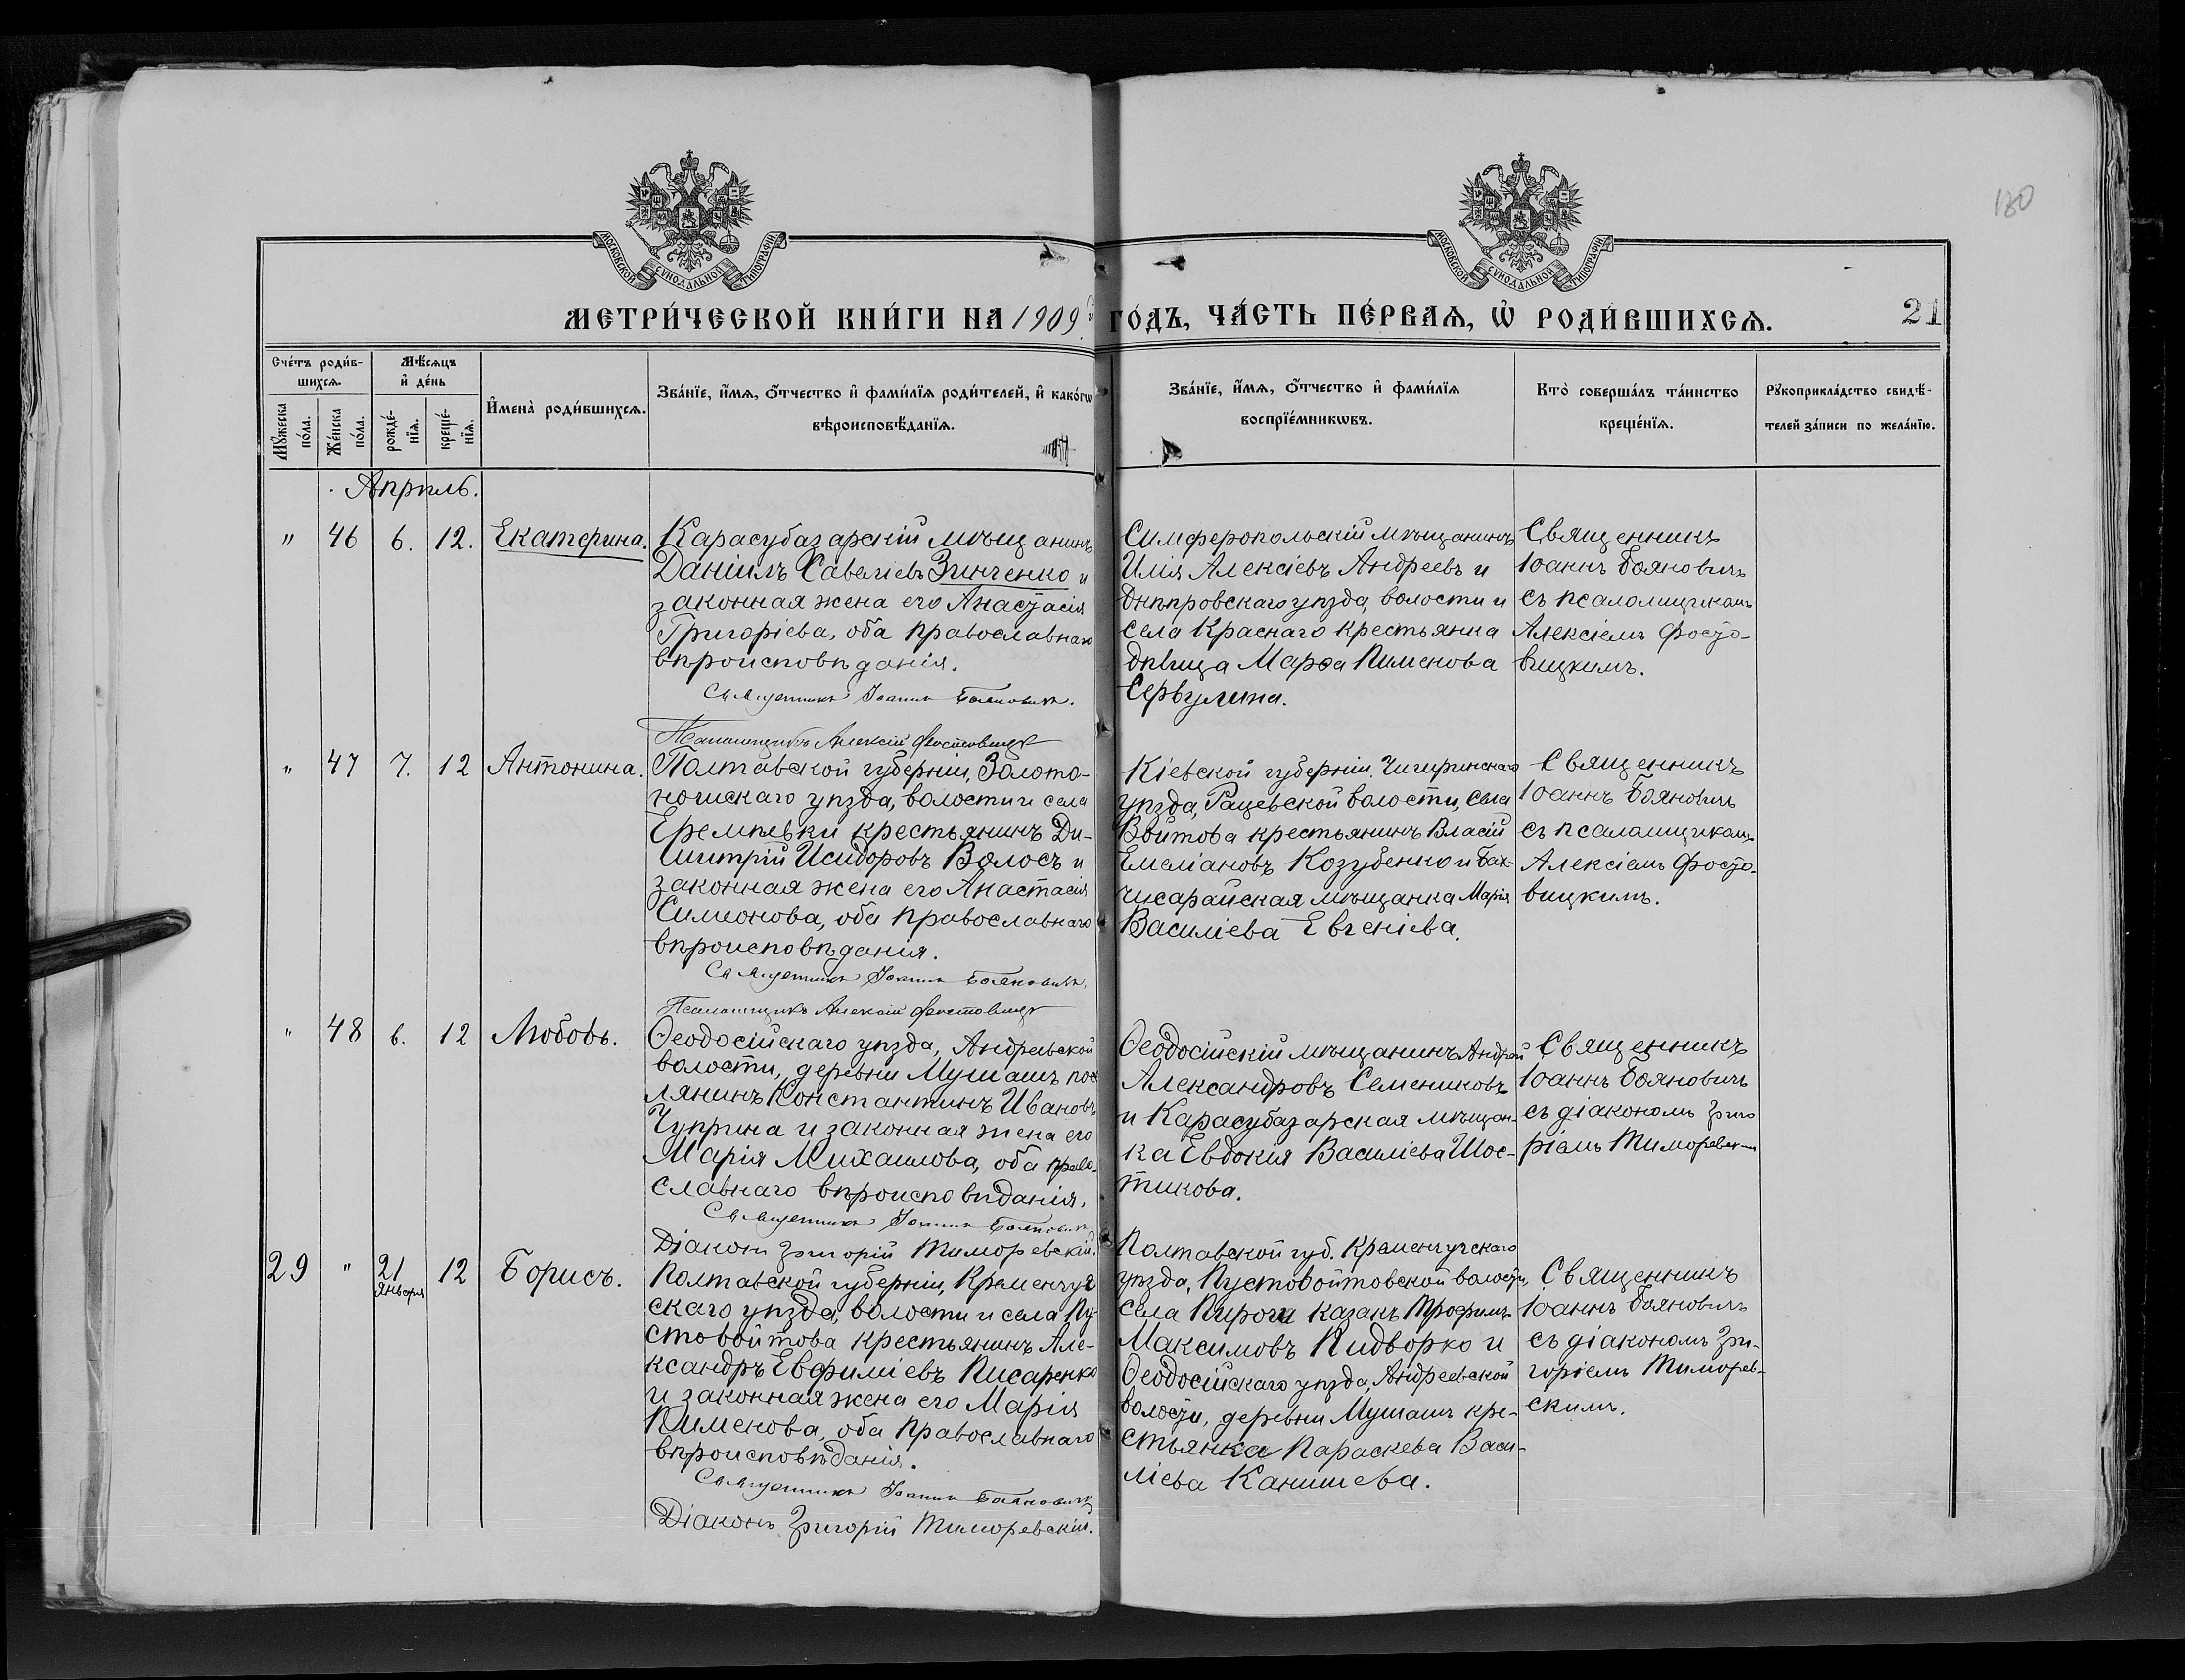 180
МОСКОВСКОЙ СѴНОДАЛЬНОЙ ТИПОГРАФІИ
МОСКОВСКОЙ СѴНОДАЛЬНОЙ ТИПОГРАФІИ
МЕТРИ́ЧЕСКОЙ КНИ́ГИ НА 1909й ГО́ДЪ, ЧА́СТЬ ПЕ́РВАѦ, Ѽ РОДИ́ВШИХСѦ.
21
Сче́тъ роди́в-
шихсѧ.
Мꙋ́жеска по́ла.
Же́нска по́ла.
Мѣ́сѧцъ
и҆ де́нь
рожде́-
нїѧ.
креще́-
нїѧ.
И҆мена̀ роди́вшихсѧ.
Зва́нїе, и҆́мѧ, ѻ҆́тчество и҆ фами́лїѧ роди́телей, и҆ како́гѡ
вѣроисповѣ́данїѧ.
Зва́нїе, и҆́мѧ, ѻ҆́тчество и҆ фами́лїѧ
воспрїе́мникѡвъ.
Кто̀ соверша́лъ та́инство
креще́нїѧ.
Рꙋкоприкла́дство свидѣ́-
телей за́писи по жела́нїю.
Апрѣль.
" 46 6. 12. Екатерина.
Карасубазарскій мѣщанинъ
Даніилъ Савеліевъ Зинченко и
законная жена его Анастасія
Григоріева, оба православнаго
вѣроисповѣданія.
Священникъ Іоаннъ Бояновичъ.
Псаломщикъ Алексій Фостовицк
Симферопольскій мѣщанинъ
Илія Алексіевъ Андреевъ и
Днѣпровскаго уѣзда, волости и
села Краснаго крестьянка
дѣвица Марѳа Пименова
Сервулина.
Священникъ
Іоаннъ Бояновичъ
съ псаломщикомъ
Алексіемъ Фосто-
вицкимъ.
" 47 7. 12 Антонина.
Полтавской губерніи, Золото-
ношскаго уѣзда, волости и села
Еремѣевки крестьянинъ Ди-
митрій Исидоровъ Волосъ и
законная жена его Анастасія
Симонова, оба православнаго
вѣроисповѣданія.
Священникъ Іоаннъ Бояновичъ.
Псаломщикъ Алексій Фостовицк
Кіевской губерніи, Чигиринскаго
уѣзда, Рацевской волости, села
Войтова крестьянинъ Власій
Емеліановъ Козубенко и Бах-
чисарайская мѣщанка Марія
Василіева Евгеніева.
Священникъ
Іоаннъ Бояновичъ
съ псаломщикомъ
Алексіемъ Фосто-
вицкимъ.
" 48 6. 12 Любовь.
Ѳеодосійскаго уѣзда, Андреевской
волости, деревни Мушашъ посе
лянинъ Константинъ Ивановъ
Чуприна и законная жена его
Марія Михаилова, оба право-
славнаго вѣроисповѣданія.
Священникъ Іоаннъ Бояновичъ
Діаконъ Григорій Тиморевскій.
Ѳеодосійскій мѣщанинъ Андрей
Александровъ Семениковъ
и Карасубазарская мѣщан-
ка Евдокія Василіева Шос-
тикова.
Священникъ
Іоаннъ Бояновичъ
съ діакономъ Григо
ріемъ Тиморевск-и
29 " 21 января 12 Борисъ.
Полтавской губерніи, Кременчуг
скаго уѣзда, волости и села Пу-
стовойтова крестьянинъ Але-
ксандръ Евфиміевъ Писаренко
и законная жена его Марія
Пименова, оба православнаго
вѣроисповѣданія.
Священникъ Іоаннъ Бояновичъ
Діаконъ Григорій Тиморевскій.
Полтавской губ. Кременчугскаго
уѣзда, Пустовойтовской волости,
села Пироги казакъ Трофимъ
Максимовъ Пидворко и
Ѳеодосійскаго уѣзда, Андреевской
волости, деревни Мушашъ кре-
стьянка Параскева Васи-
ліева Канишева.
Священникъ
Іоаннъ Бояновичъ
съ діакономъ Гри-
горіемъ Тиморев-
скимъ.